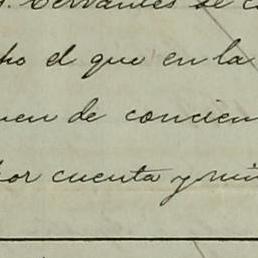 Cervantes se
el que en la
de concien
por cuenta y